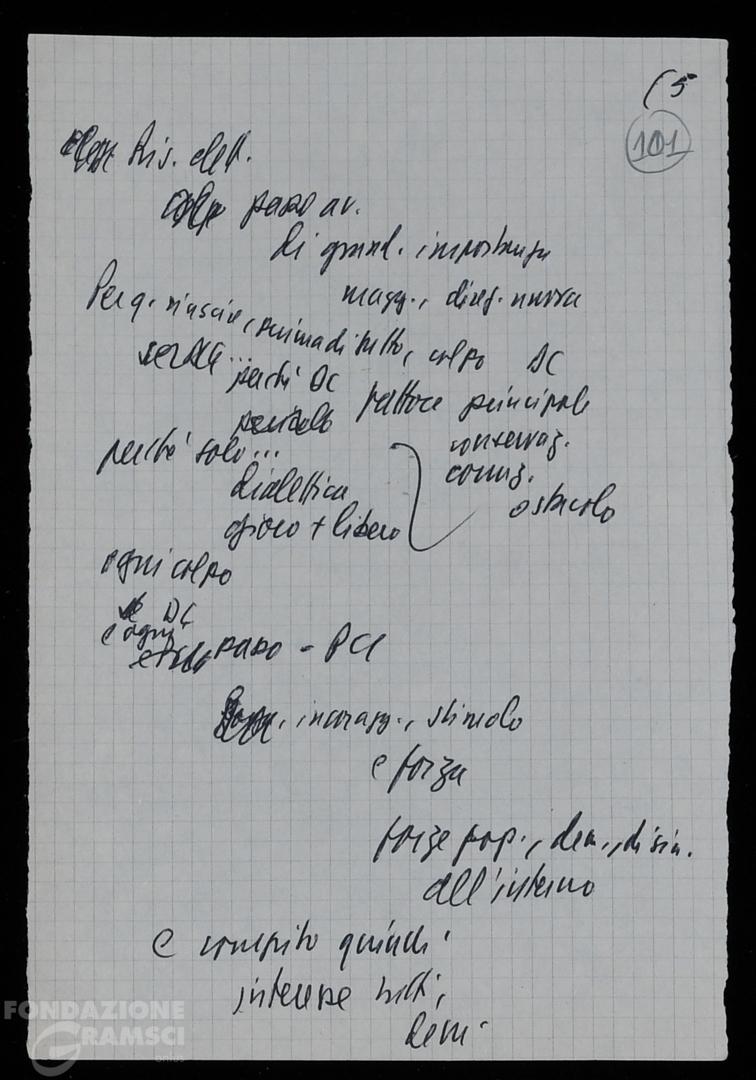 (5
101
Ris. elett.
passo av.
di grand. importanza
magg., direz. nuova
Per q. riuscire, prima di tutto, colpo DC
senza...
perché DC fattore principale
pericolo conservaz.
perché solo... corruz.
dialettica ostacolo
gioco + libero
ogni colpo
DC
e ogni
passo - PCI
incoragg., stimolo
e forza
forze pop., dem., di sin.
all'interno
E compito quindi
interesse tutti
dem.
FONDAZIONE
GRAMSCI
onlus